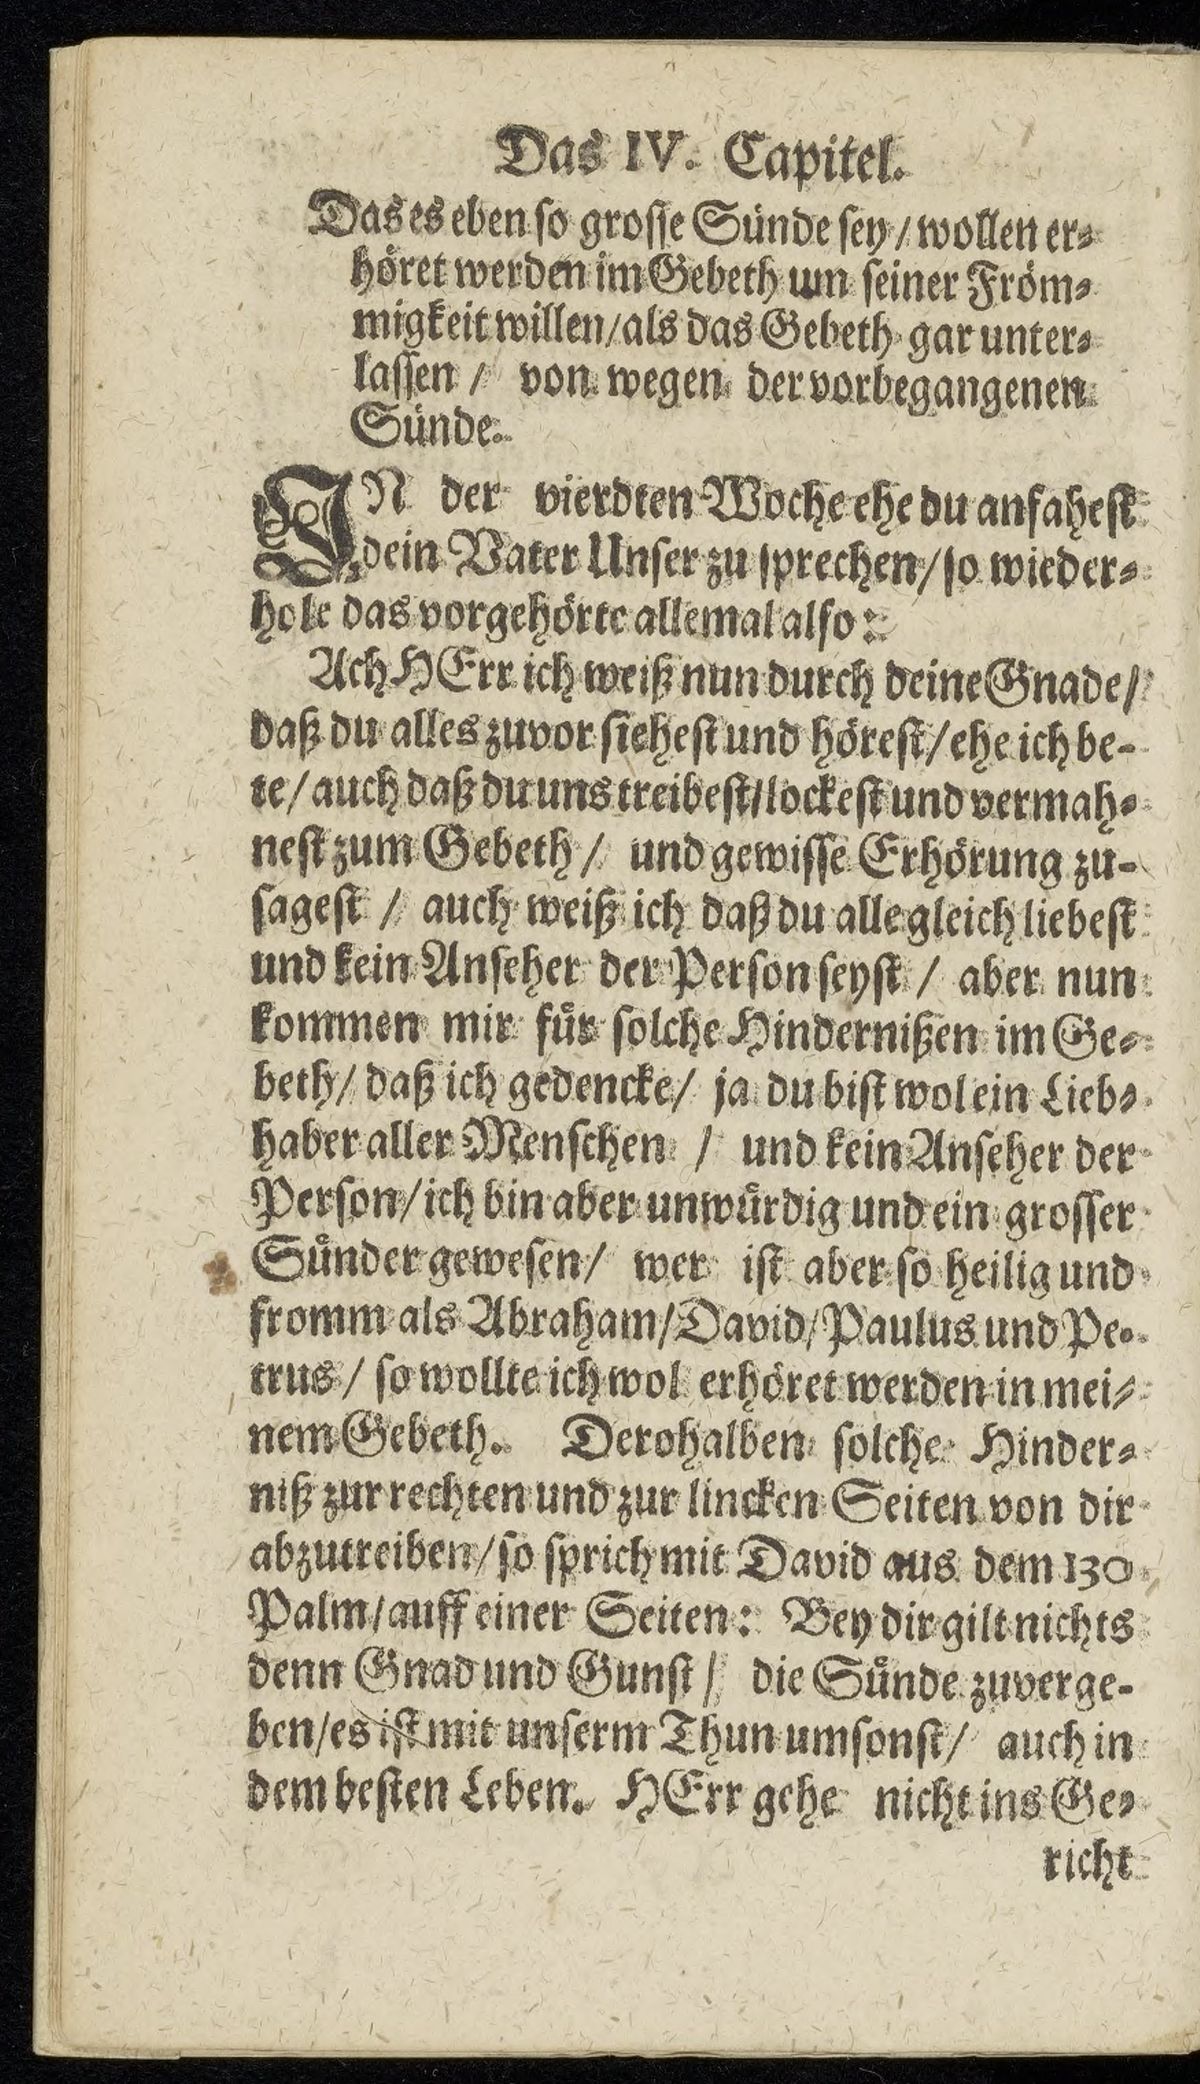 Das IV. Capitel.
Das es eben so grosse Sünde sey / wollen er-
höret werden im Gebeth um seiner Fröm-
migkeit willen / als das Gebeth gar unter-
lassen / von wegen der vorbegangenen
Sünde.
IN der vierdten Woche ehe du anfahest
dein Vater Unser zu sprechen / so wieder-
hole das vorgehörte allemal also:
Ach HErr ich weiß nun durch deine Gnade /
daß du alles zuvor siehest und hörest / ehe ich be-
te / auch daß du uns treibest / lockest und vermah-
nest zum Gebeth / und gewisse Erhörung zu-
sagest / auch weiß ich daß du alle gleich liebest
und kein Anseher der Person seyst / aber nun
kommen mir für solche Hindernißen im Ge-
beth / daß ich gedencke / ja du bist wol ein Lieb-
haber aller Menschen / und kein Anseher der
Person / ich bin aber unwürdig und ein grosser
Sünder gewesen / wer ist aber so heilig und
fromm als Abraham / David / Paulus und Pe-
trus / so wollte ich wol erhöret werden in mei-
nem Gebeth. Derohalben solche Hinder-
niß zur rechten und zur lincken Seiten von dir
abzutreiben / so sprich mit David aus dem 130
Palm / auff einer Seiten: Bey dir gilt nichts
denn Gnad und Gunst / die Sünde zuverge-
ben / es ist mit unserm Thun umsonst / auch in
dem besten Leben. HErr gehe nicht ins Ge-
richt